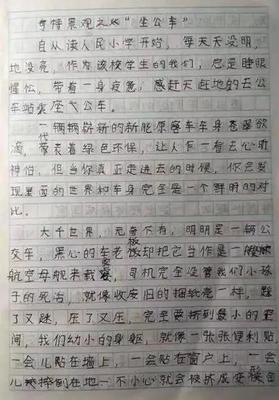 奇特景观之《坐公车》
自从读人民小学开始，每天天没明，
地没亮，作为该校学生的我们，总是睡眼
惺忪，带着一身疲惫，感赶天赶地的去公
车站坐公车。
一辆辆崭新的新能原客车车身苍翠欲
滴，代表着绿色环保，让人乍一看去心旷
神怡，但当你真正走进去的时候，你会发
现里面的世界和车身完全是一个鲜明的对
比。
大千世界，无奇不有，明明是一俩公
交车，黑心的车老板却把它当作是一
航空母舰来载客，司机完全没管我们小孩
子的死活，就像收废旧的捆纸壳一样，
了又，压了又压，完全要挤到最小的空
间，我们幼小的身躯，就像一张张便利贴
一会儿贴在墙上，一会儿贴在窗户上，一会
儿摔倒在地一不小心就会被挤成变